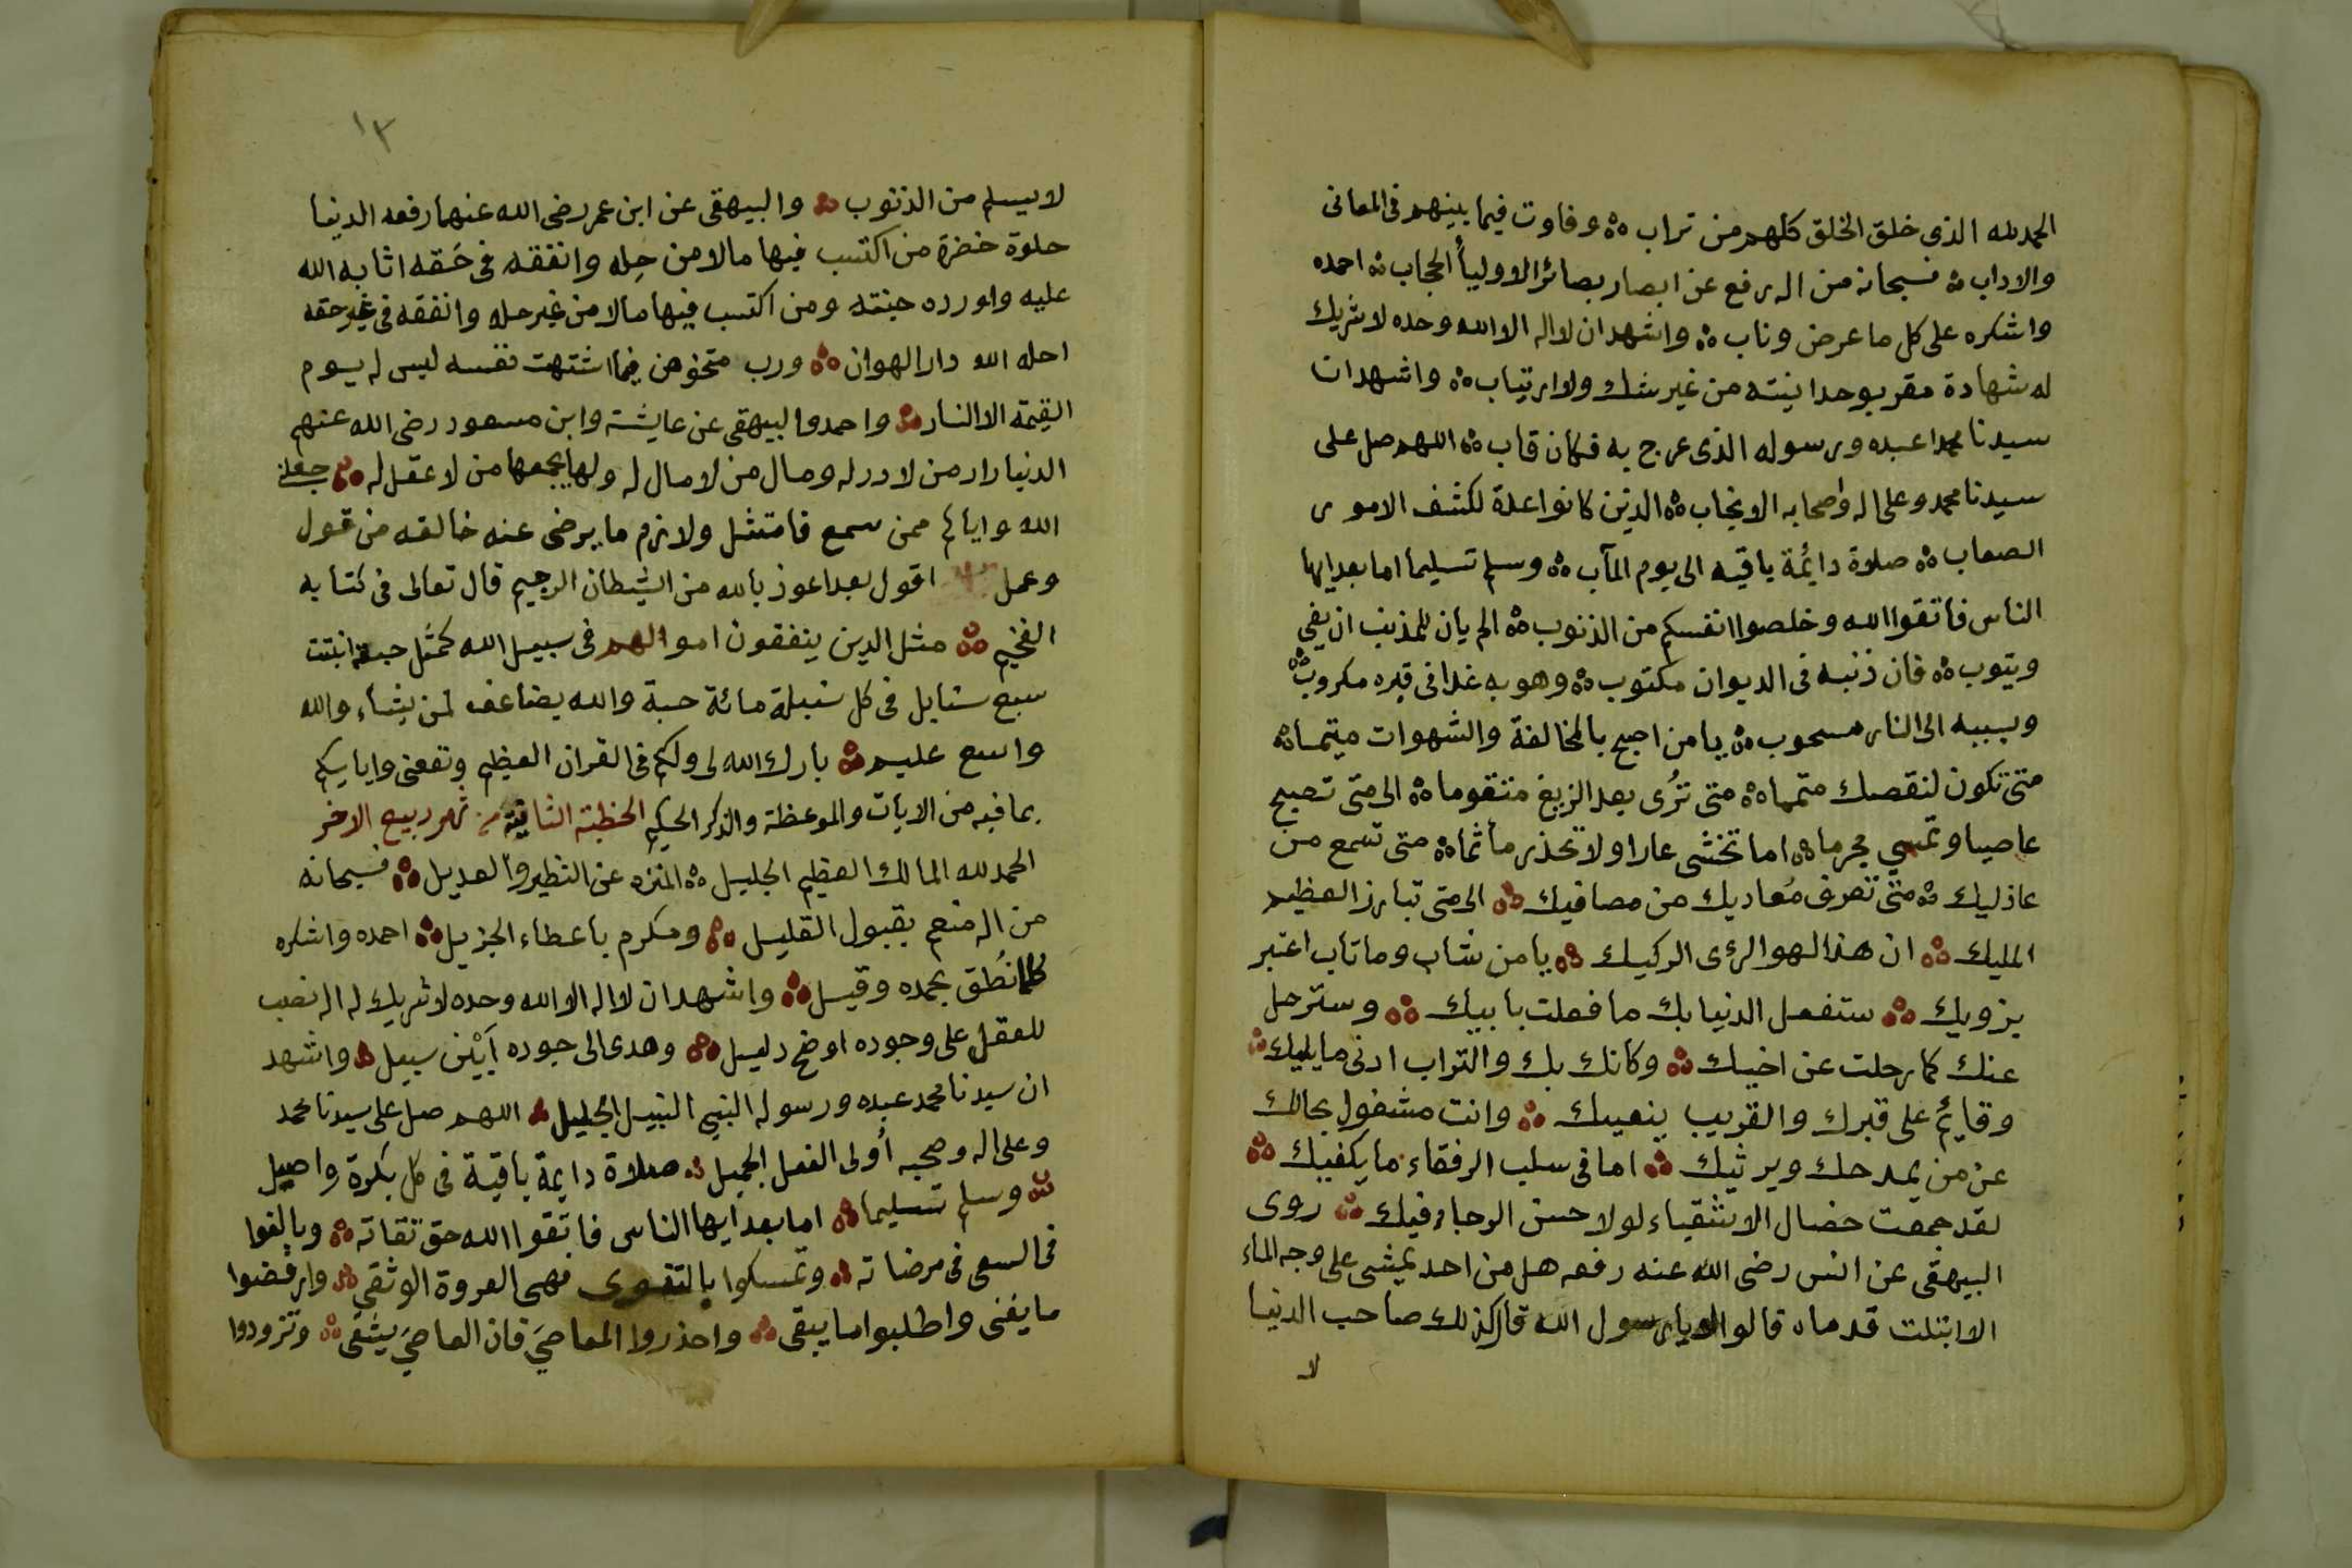 الحمد لله الذى خلق الخلق كلهم من تراب ۞ وفاوت فيما بينهم فى المعانى
والاداب ۞ فسبحانه من اله رفع عن ابصار بصائر الاوليأ الحجاب ۞ احمده
واشكره على كل ما عرض وناب ۞ واشهد ان لا اله الا الله وحده لا شريك
له شهادة مقر بوحدانيته من غير شك ولا ارتياب ۞ واشهد ان
سيدنا محمدا عبده ورسوله الذى عرج به فكان قاب ۞ اللهم صل على
سيدنا محمد وعلى اله واصحابه الانجاب ۞ الذين كانوا عدة لكشف الامور
الصعاب ۞ صلاة دائمة باقيه الى يوم المآب ۞ وسلم تسليما اما بعد ايها
الناس فاتقوا الله وخلصوا انفسكم من الذنوب ۞ الم يان للمذنب ان يفي
ويتوب ۞ فان ذنبه فى الديوان مكتوب ۞ وهو به غدا فى قبره مكروب ۞
وبسببه الى النار مسحوب ۞ يا من اصبح بالمخالفة والشهوات متيما ۞
متى تكون لنقصك متمما ۞ متى تُرى بعد الزيغ متقوما ۞ الى متى تصبح
عاصيا وتمسي مجرما ۞ اما تخشى عارا ولا تحذر مأثما ۞ متى تسمع من
عاذليك ۞ متى تعرف مُعاديك من مصافيك ۞ الى متى تبارز العظيم
المليك ۞ ان هذا لهو الرءى الركيك ۞ يا من شاب وما تاب اعتبر
بزويك ۞ ستفعل الدنيا بك ما فعلت بابيك ۞ وسترحل
عنك كما رحلت عن اخيك ۞ وكانك بك والتراب ادنى ما يليك ۞
وقايم على قبرك والقريب ينعيك ۞ وانت مشغول بحالك
عن من يمدحك ويرثيك ۞ اما فى سلب الرفقاء ما يكفيك ۞
لقد جمعت خصال الاشقياء لولا حسن الرجاء فيك ۞ روى
البيهقى عن انس رضى الله عنه رفعه هل من احد يمشى على وجه الماء
الا ابتلت قدماه قالوا لا يا رسول الله قال كذلك صاحب الدنيا
لا
١٣
لا يسلم من الذنوب ۞ والبيهقى عن ابن عمر رضى الله عنهما رفعه الدنيا
حلوة خضرة من اكتسب فيها مالا من حِله وانفقه فى حَقه اثابه الله
عليه واورده جنته ومن اكتسب فيها مالا من غير حله وانفقه فى غير حقه
احله الله دار الهوان ۞ ورب متخوض فيما اشتهت نفسه ليس له يوم
القيمة الا النار ۞ واحمد والبيهقى عن عايشة وابن مسعود رضى الله عنهم
الدنيا دار من لا دار له ومال من لا مال له ولها يجمعها من لا عقل له ۞ جعلنا
الله واياكم ممن سمع فامتثل ولازم ما يرضى عنه خالقه من قول
وعمل اقول بعد اعوذ بالله من الشيطان الرجيم قال تعالى فى كتابه
الفخيم ۞ مثل الذين ينفقون اموالهم فى سبيل الله كمثل حبة انبتت
سبع سنابل فى كل سنبلة مائة حبة والله يضاعف لمن يشاء والله
واسع عليم ۞ بارك الله لى ولكم فى القران العظيم ونفعنى واياكم
بما فيه من الايات والموعظة والذكر الحكيم الخطبة الثانية من شهر ربيع الاخر
الحمد لله المالك العظيم الجليل ۞ المنزه عن النظير والعديل ۞ فسبحانه
من اله منعم بقبول القليل ۞ ومكرم باعطاء الجزيل ۞ احمده واشكره
كلما نُطق بحمده وقيل ۞ واشهد ان لا اله الا الله وحده لا شريك له اله نصب
للعقل على وجوده اوضح دليل ۞ وهدى الى جوده اَبْيَن سبيل ۞ واشهد
ان سيدنا محمد عبده ورسوله النبي النبيل الجليل ۞ اللهم صل على سيدنا محمد
وعلى اله وصحبه أولى الفعل الجميل ۞ صلاة دايمة باقية فى كل بكرة واصيل
۞ وسلم تسليما ۞ اما بعد ايها الناس فاتقوا الله حق تقاته ۞ وبالغوا
فى السعى فى مرضاته ۞ وتمسكوا بالتقوى فهى العروة الوثقى ۞ وارفضوا
ما يفنى واطلبوا ما يبقى ۞ واحذروا المعاصَي فان العاصَي يشقى ۞ وتزودوا